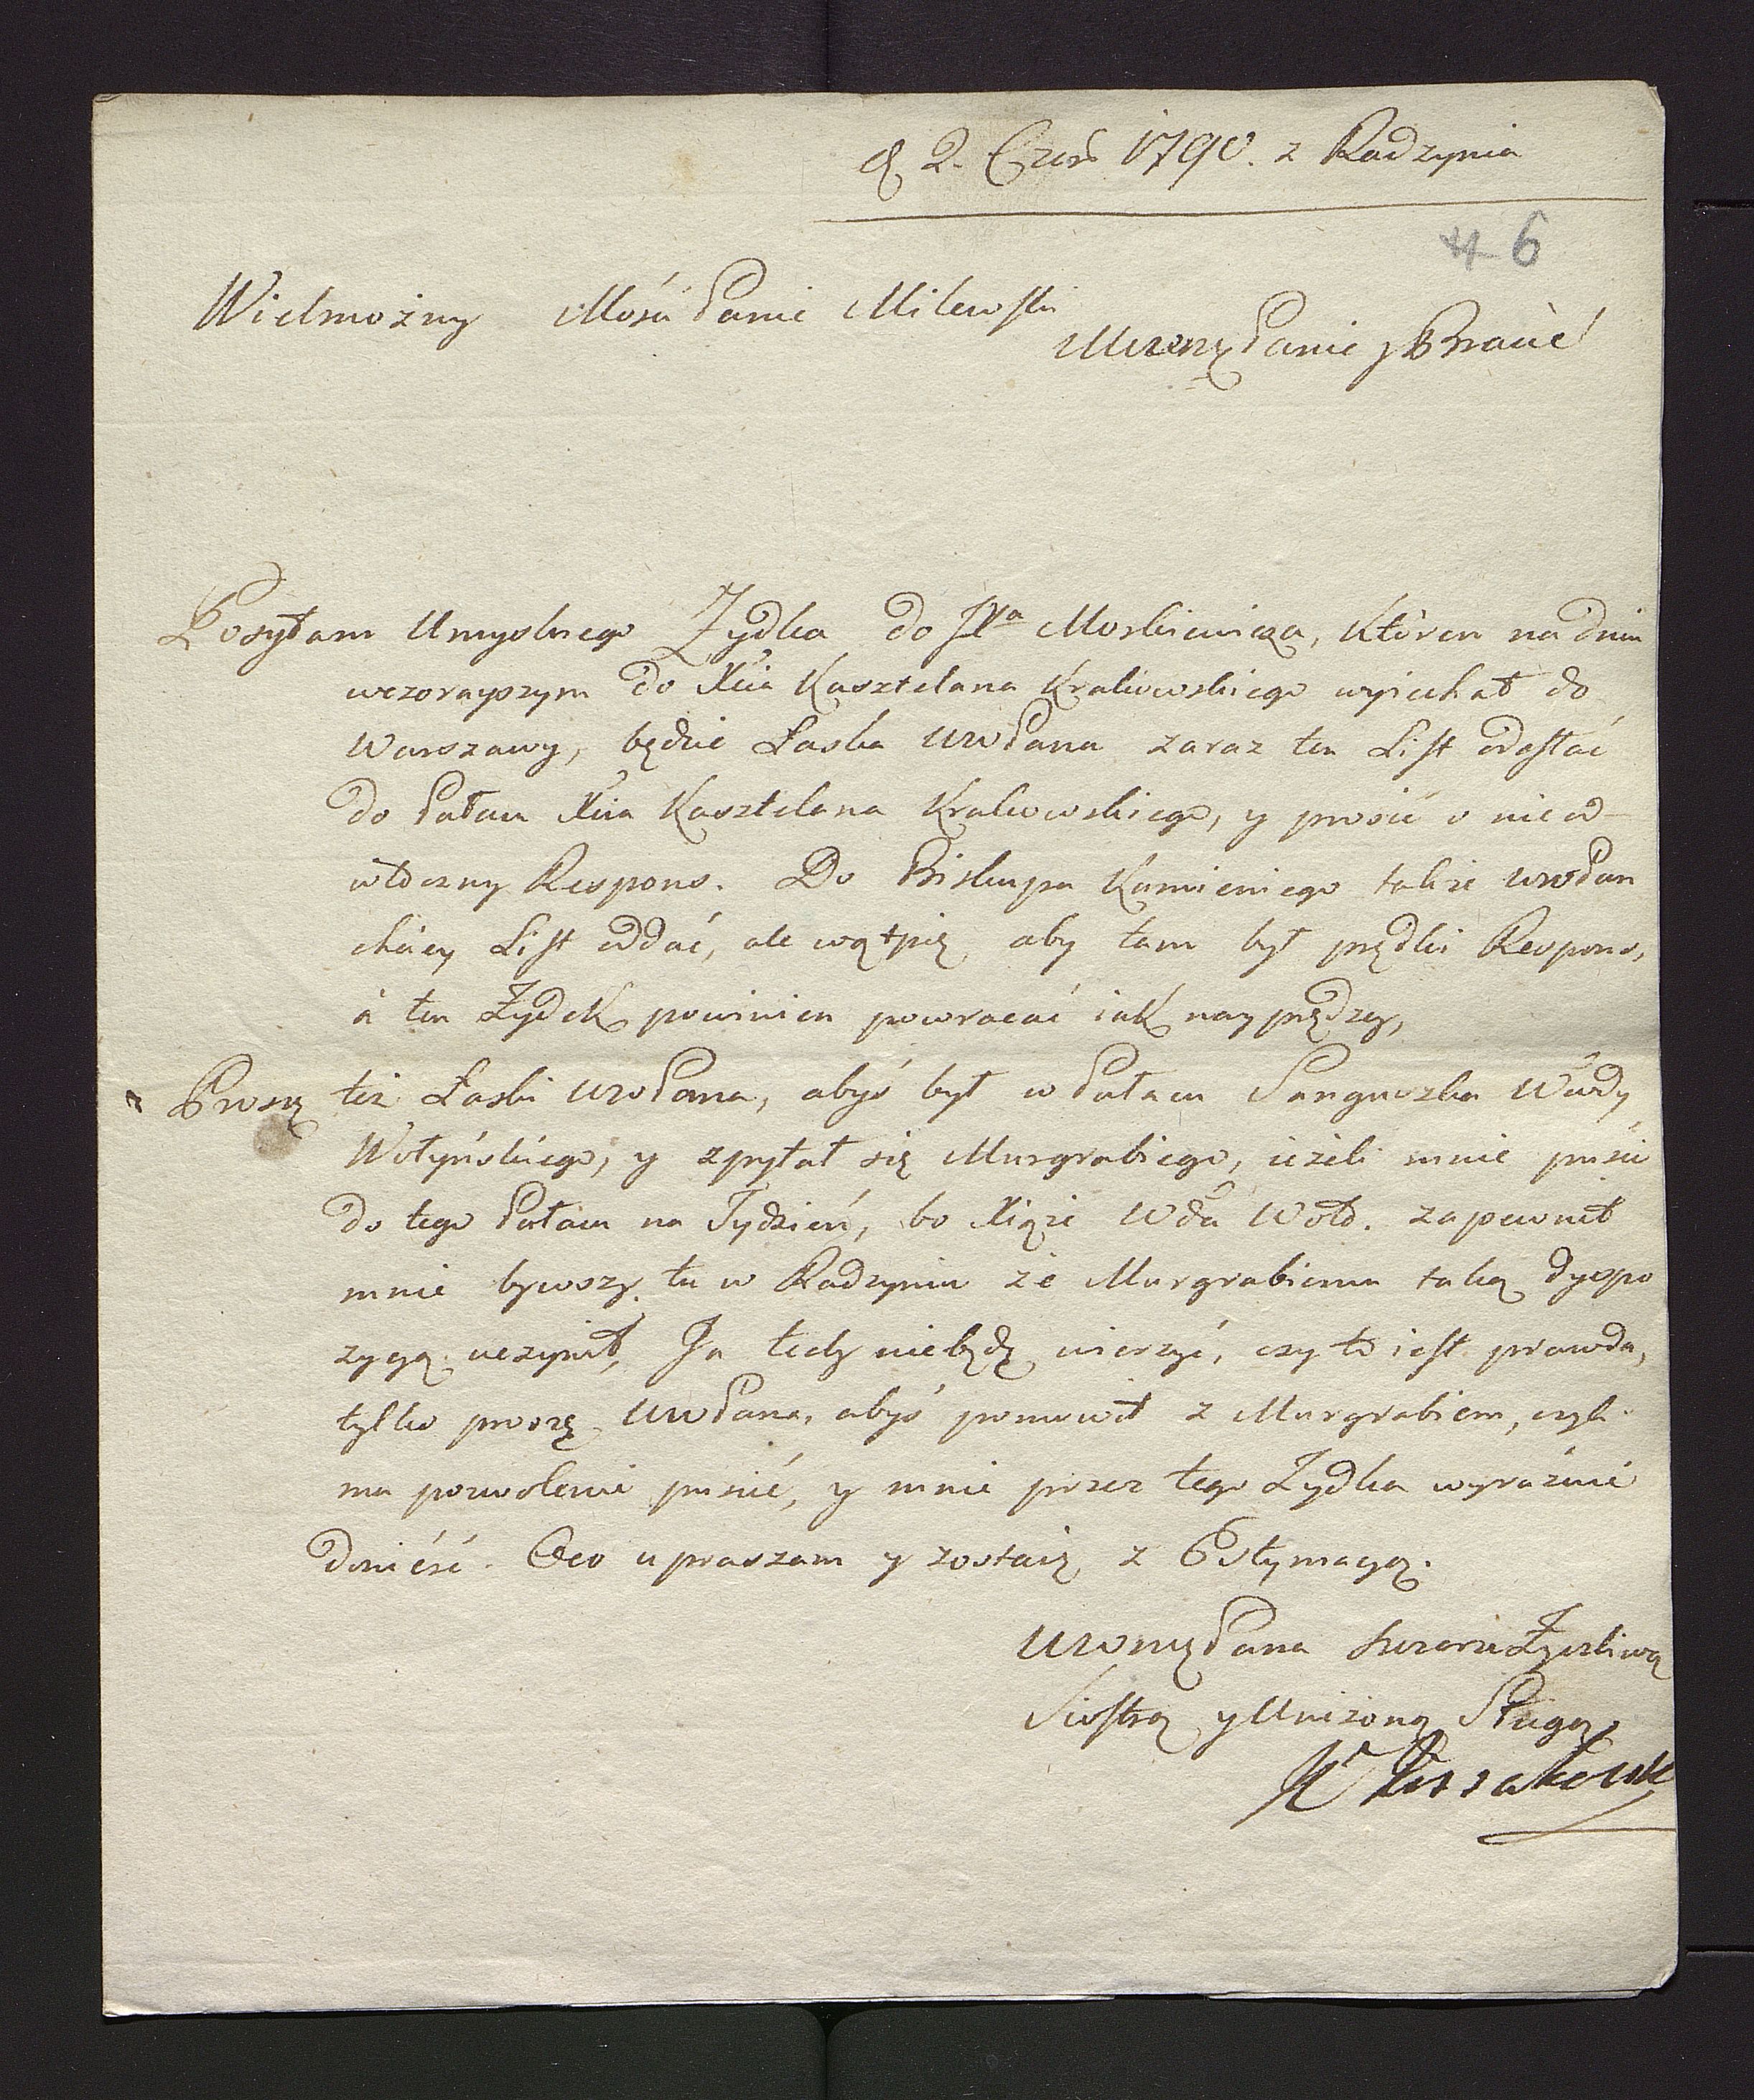 d 2. Czer 1790. z Radzynia
6
Wielmożny Mości Panie Milewski
Mwmę Panie y Bracie
Posyłam Umyslnego Zydka do JPa Moskiewicza, Ktòren na dniu
wczorayszym do Xcia Kasztelana Krakowskiego wyiechał do
Warszawy, będzie Łaska WwPana zaraz ten List odesłać
do Pałacu Xcia Kasztelana Krakowskiego, y prosić o nieod-
włoczny Respons. Do Biskupa Kamieniego także WwPan
chciey List oddać, ale wątpię aby tam był prędki Respons,
à ten Żydek powinien powracać iak nayprędzey,
Proszę też Łaski WwPana, abyś był w Pałacu Sanguszka Wdy
Wołyńskiego, y zpytał się Murgrabiego, ieżeli mnie puści
do tego Pałacu na Tydzień, bo Xiąże Wda Woło. zapewnił
mnie bywszy tu w Radzyniu że Murgrabiemu taką dyspo
zycyą uczynił, Ja tedy niebędę wierzyć, czy to iest prawda,
tylko proszę WwPana, abyś pomowił z Murgrabiem, czyli
ma pozwolenie puścić, y mnie przez tego Żydka wyraźnie
donieść. Oco upraszam y zostaię z Estymacyą.
WwmęPana szczerze Zyczliwą
Siostrą y Uniżoną Sługą
K Kossakowsk